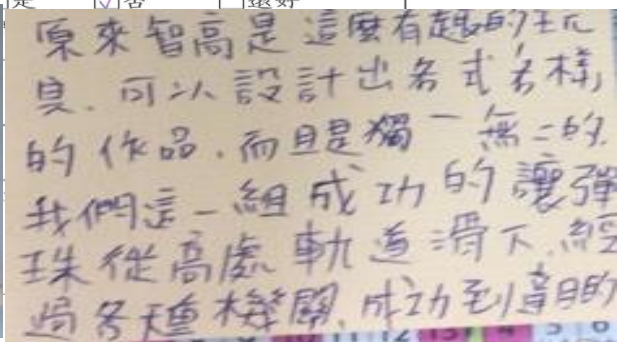 是 ☑否 □還好
原來智高是這麼有趣的玩
具.可以設計出各式各樣,
的作品.而且是獨一無二的.
我們這一組成功的讓彈
珠從高處軌道滑下.經
過各種機關.成功到達目的
10 11 12 13 4 5 6